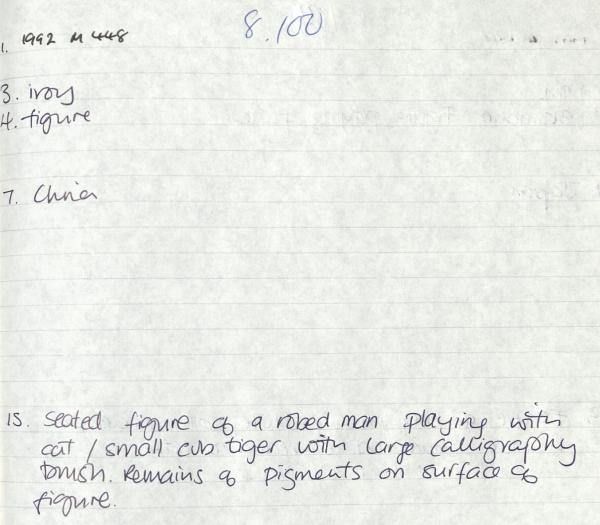 8.100
1. 1992 M 448
3. ivory
4. figure
7. China
15. Seated figure of a robed man playing with
cat / small cub tiger with large calligraphy
brush. Remains of pigments on surface of
figure.